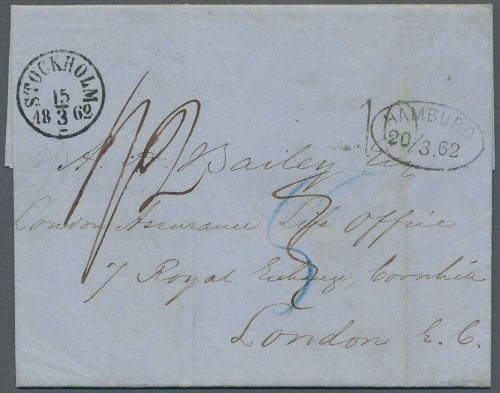 STOCKHOLM
15
3
18 62
HAMBURG
20/3.62
1/2
A. H. Bailey Esq
London Assurance Life Office
7 Royal Exchange, Cornhill
London E. C.